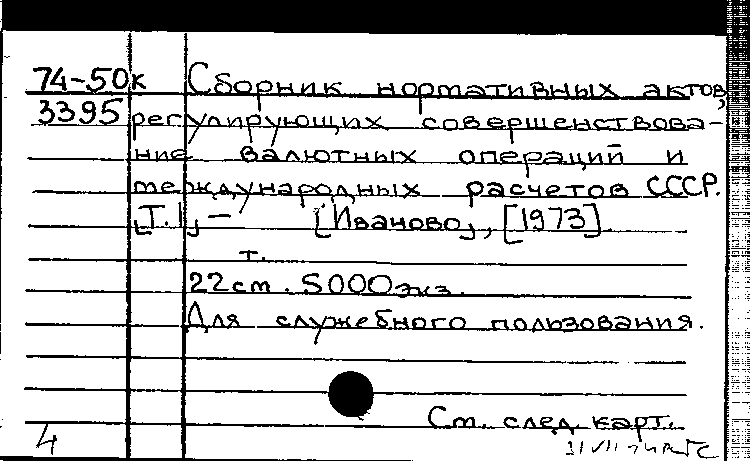 74-50к Сборник нормативных актов,
3395 регулирующих совершенствова-
ние валютных операций и
международных расчетов СССР.
[Т.1] – [Иваново], [1973]
т.
22см. 5000экз.
Для служебного пользования.
См. след. карт.
4